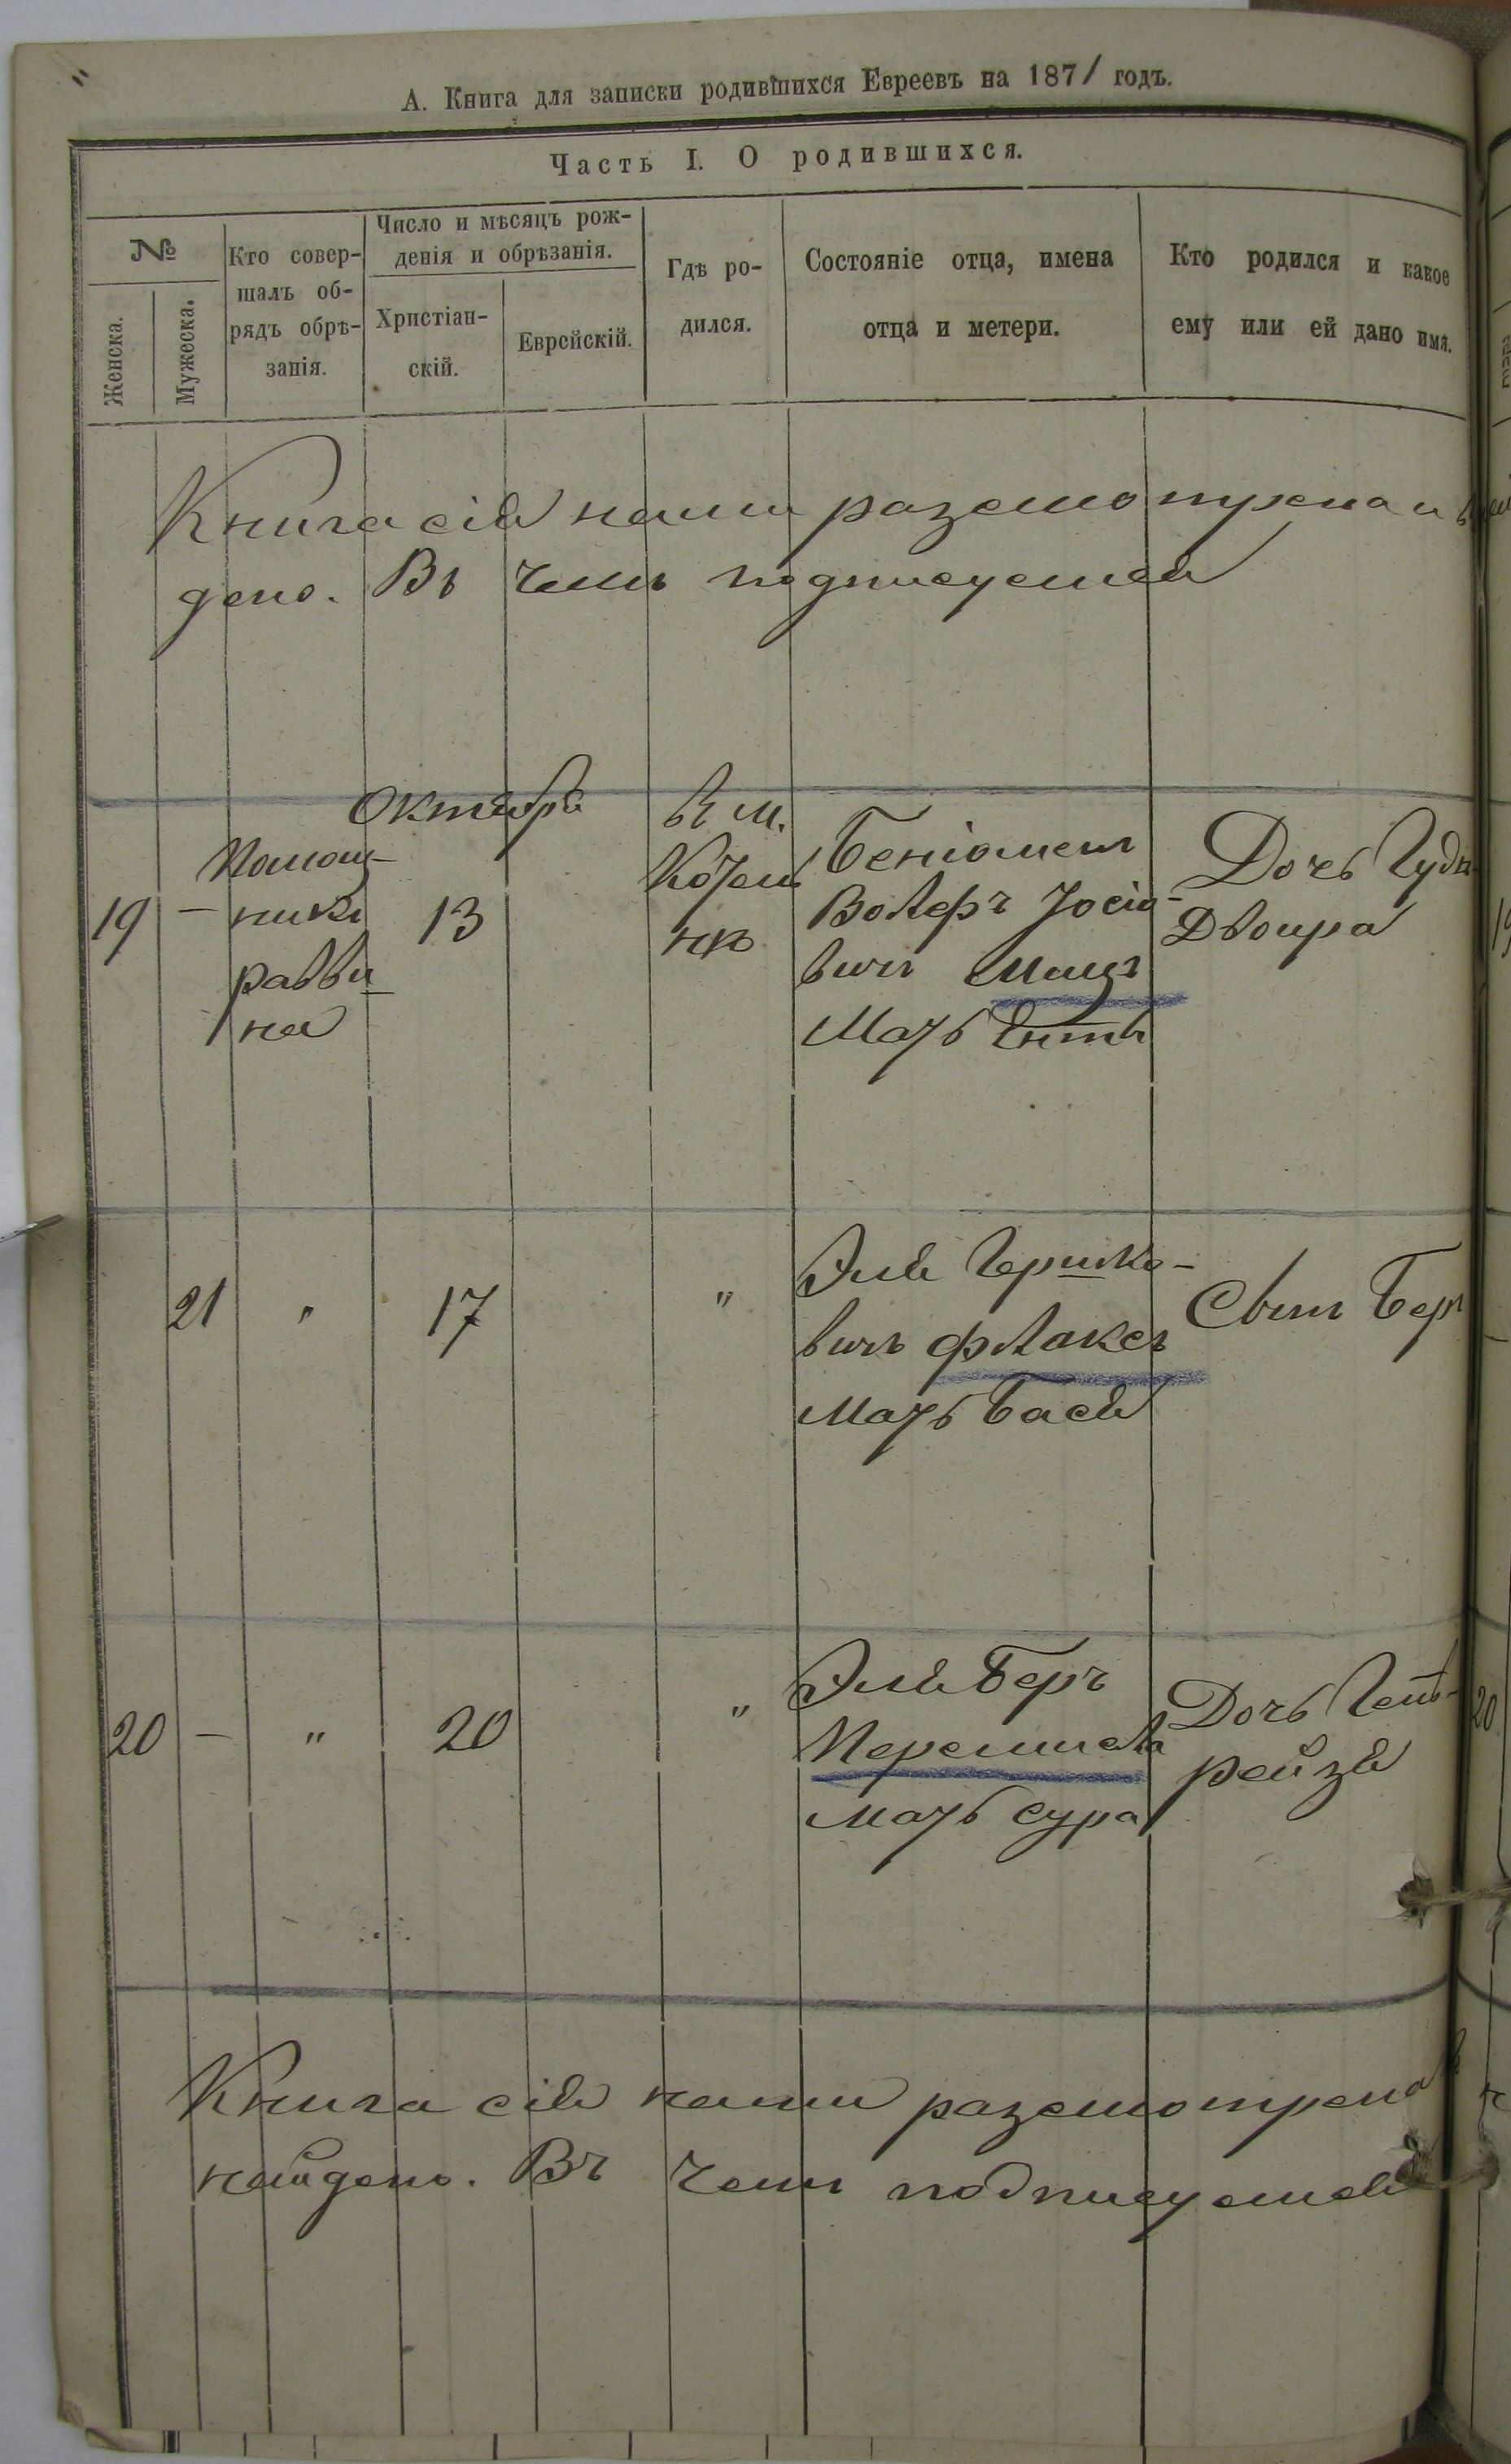 А. Книга для записки родившихся Евреевъ на 1871 годъ.
Часть I. О родившихся.
№
Женска.
Мужеска.
Кто совер-
шалъ об-
рядъ обрѣ-
занія.
Число и мѣсяцъ рож-
денія и обрѣзанія.
Христіан-
скій.
Еврейскій.
Гдѣ ро-
дился.
Состояніе отца, имена
отца и метери.
Кто родился и какое
ему или ей дано имя.
Книга сія нами разсмотрена и
дено. Въ чемъ подписуемся
Октября
19 —
Помощ-
никъ
равви
на
13
в м.
нкѣ
Беніоменъ
Вольфъ Іосіо-
вичъ Мацъ
Мать Ентъ
Дочь Гудя
Двойра
21 " 17 "
Эля Гершко-
вичъ Флаксъ
Мать Бася
Сынъ Беръ
20 — " 20 "
Эля Беръ
Перемисла
Мать Сура
Дочь
рейзя
Книга сія нами разсмотрена
найдено. Въ чемъ подписуемся